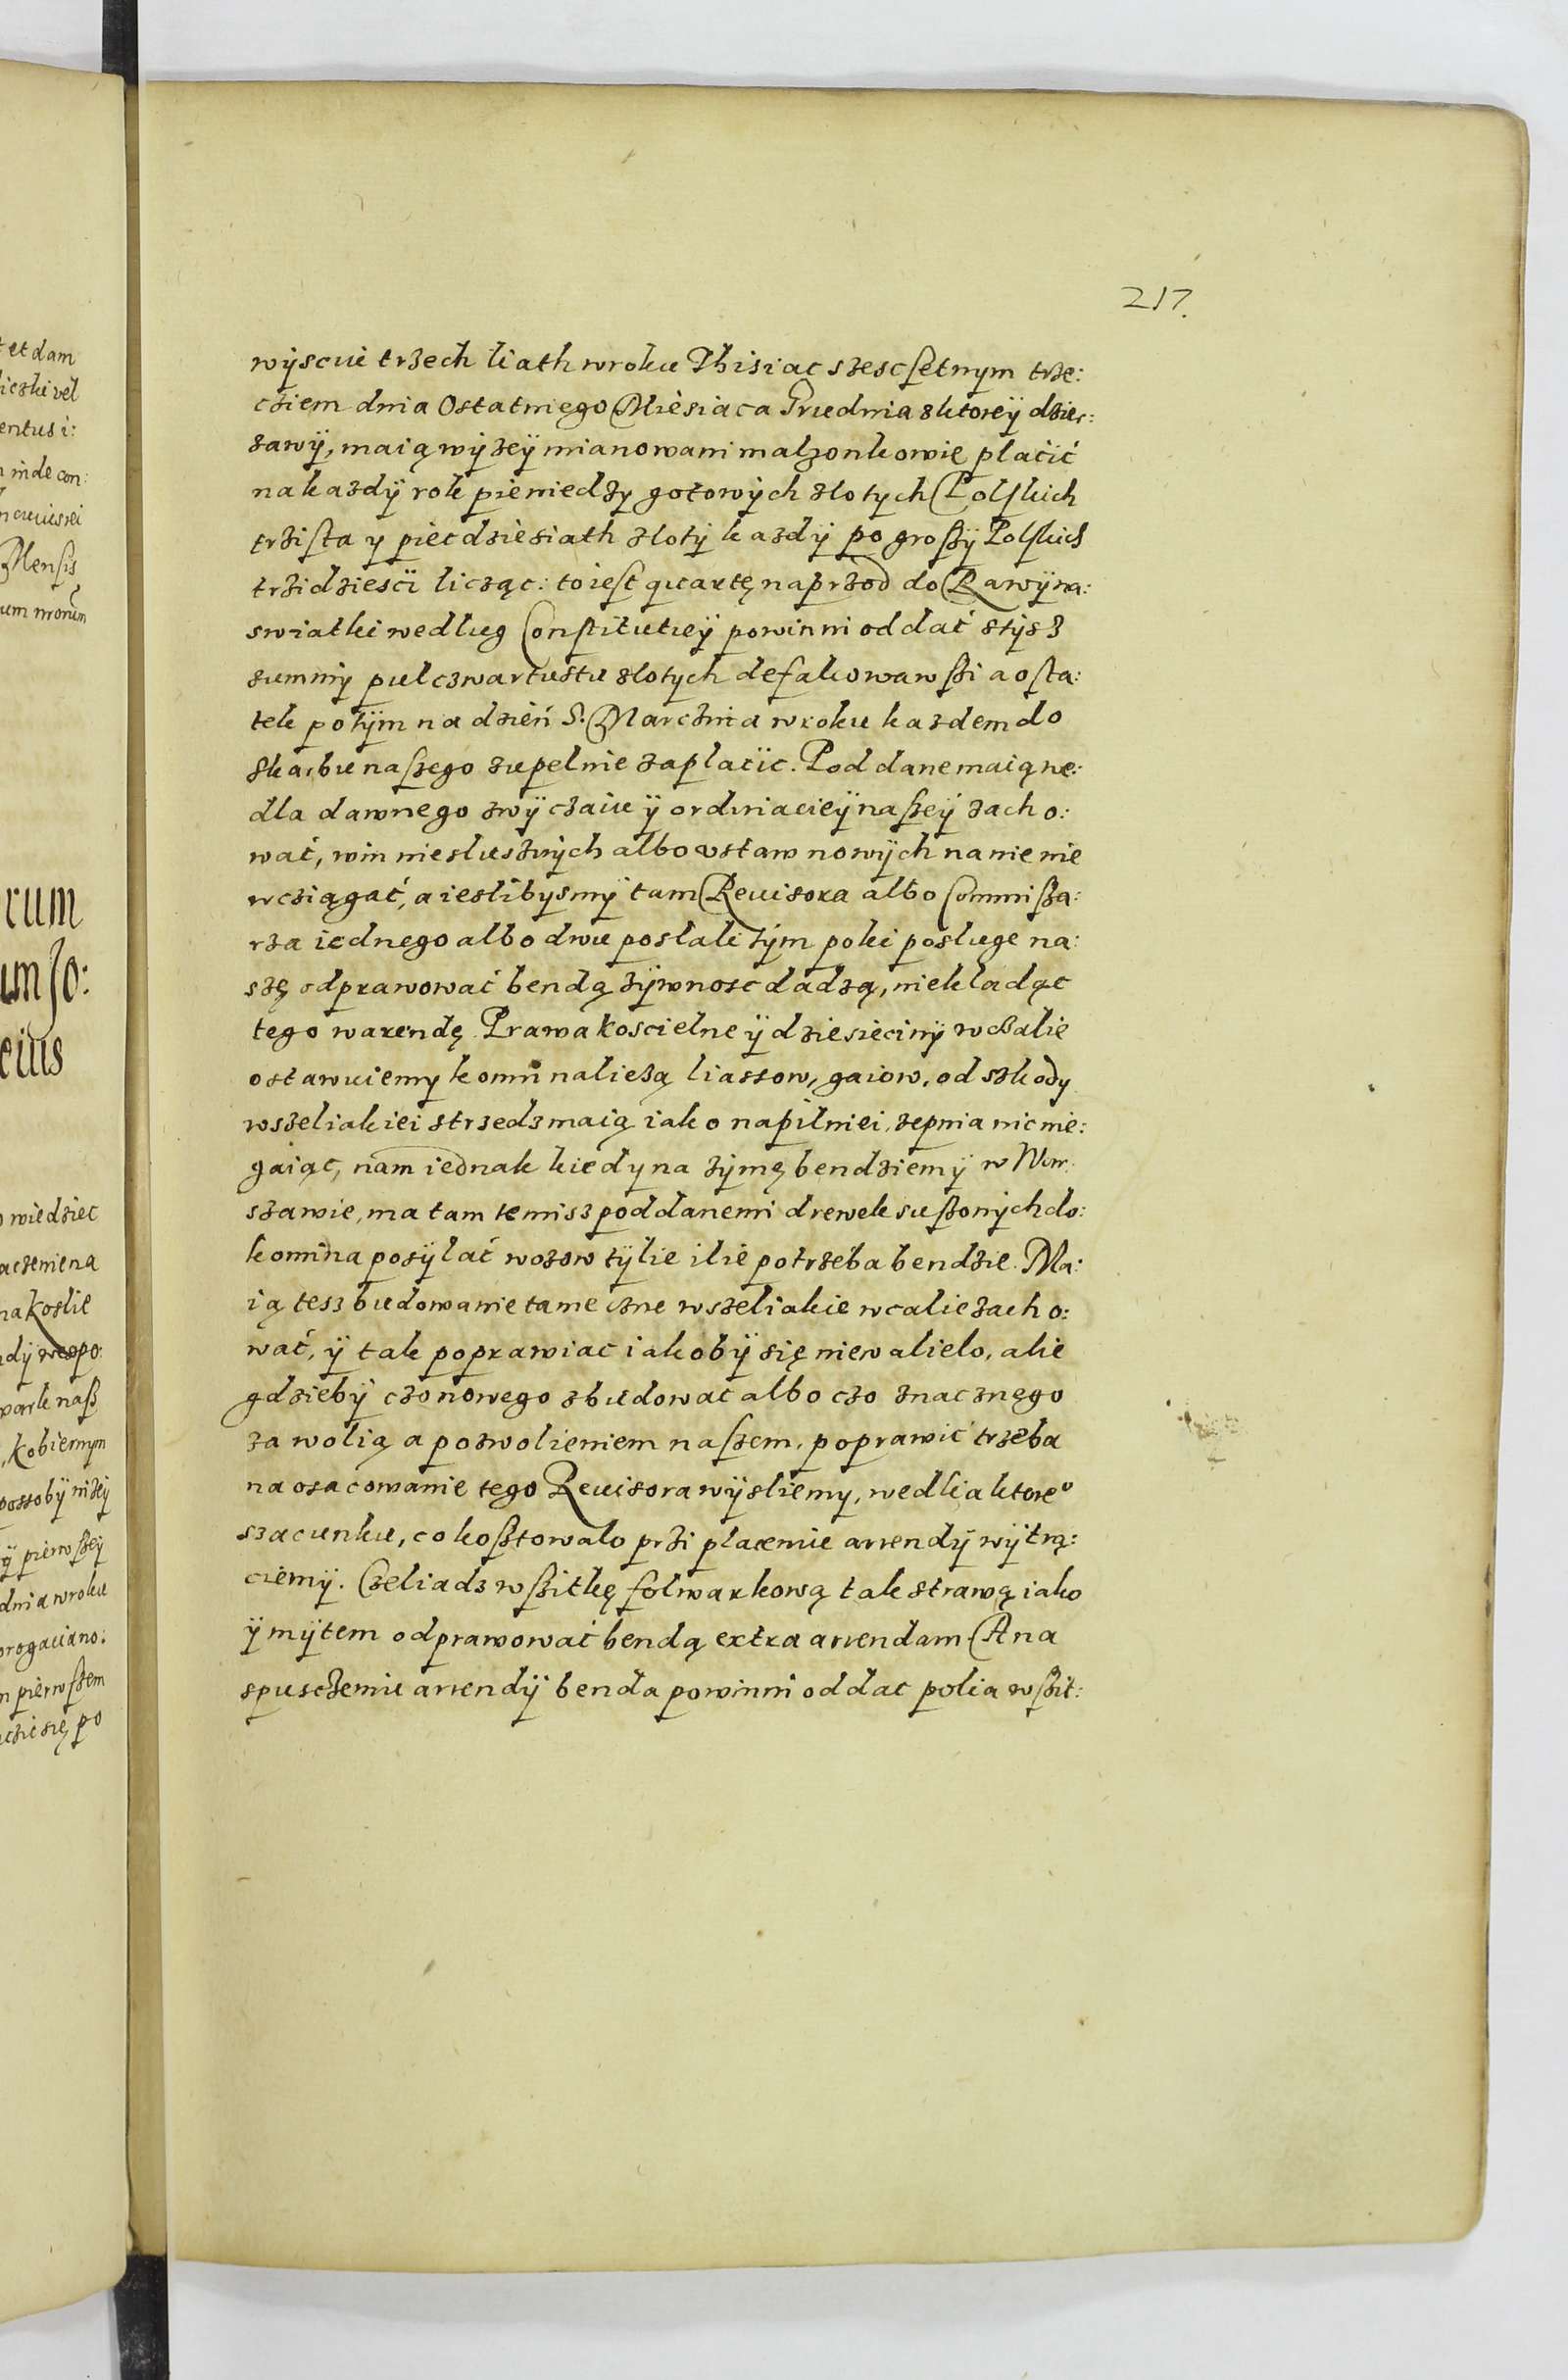 217.
wyscui trzech liath w roku Thisiac szescsetnym trze:
cziem dnia Ostatniego Miesiaca Grudnia z ktorey dzier:
zawÿ, maią wyzeÿ mianowani malzonkowie placić
na kazdÿ rok pieniedzy gotowych zlotych Polskich
trzista y piecdziesiath zloty kazdÿ po groszÿ Polskich
trzidziesci licząc: to iest quartę naprzod do Rawÿ na:
swiatki wedlug Constitutieÿ powinni oddać z tÿsz
summy pulczwartustu zlotych defalkowawszi a osta:
tek potÿm na dzień S. Marczina w roku kazdem do
skarbu naszego zupelnie zaplacic. Poddane maią we:
dla dawnego zwÿczaiu ÿ ordinacieÿ naszeÿ zacho:
wać, win niesluszných albo ustaw nowÿch na nie nie
wcziągać, a ieslibysmÿ tam Reuisora albo Commisza:
rza iednego albo dwu poslali tÿm poki posluge na:
szę odprawować bendą zÿwnosc dadzą, niekladąc
tego w arendę. Prawa koscielne ÿ dziesieciny w czalie
ostawuiemy komu naliezą liassow, gaiow, od szkody
wszeliakiei strzedz maią iako napilniei, zepnia nic nie:
gaiąc, nam iednak kiedy na zÿmę bendziemÿ w War:
szawie, ma tam temisz poddanemi drewek suszonÿch do:
komina posÿlać wozow tÿlie ilie potrzeba bendzie. Ma:
ią tesz budowanie tameczne wszeliakie w calie zacho:
wać, ÿ tak poprawiac iakobÿ się niewalielo, alie
gdziebÿ czo nowego zbudowac albo czo znacznego
za wolią a pozwolieniem naszem, poprawić trzeba
na osacowanie tego Reuisora wÿsliemy, wedlia ktore⁰
szacunku, co kosztowalo przi placeniu arrendÿ wÿtrą:
ciemÿ. Czeliadz wszitkę folwarkową tak strawą iako
ÿ mÿtem odprawować bendą extra arrendam A na
spusczeniu arrendÿ benda powinni oddac polia wszit: